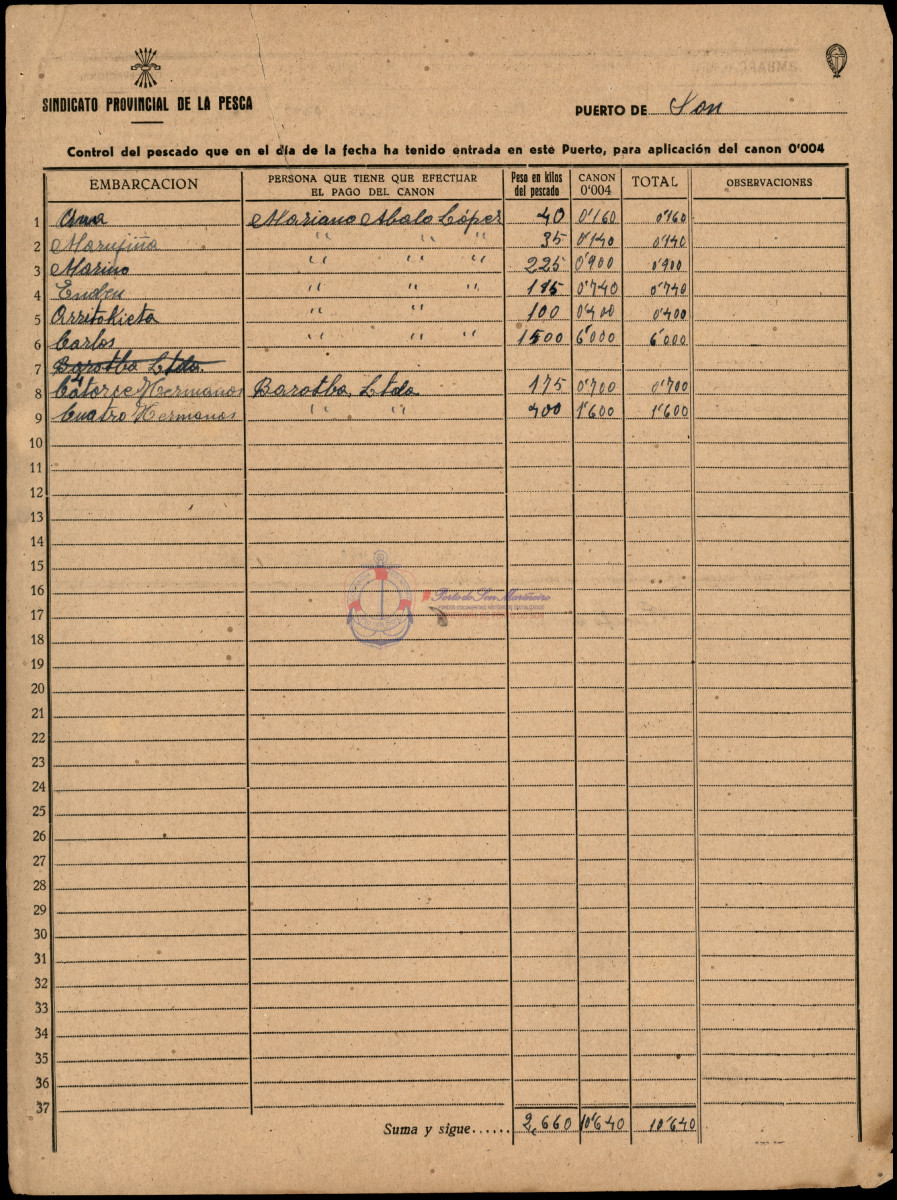 SINDICATO PROVINCIAL DE LA PESCA
PUERTO DE Son
Control del pescado que en el día de la fecha ha tenido entrada en este Puerto, para aplicación del canon 0'004
EMBARCACION PERSONA QUE TIENE QUE EFECTUAR EL PAGO DEL CANON Peso en kilos del pescado CANON 0'004 TOTAL OBSERVACIONES
1 Ama Mariano Abalo López 40 0'160 0'160
2 Marufiña " " " 35 0'140 0'140
3 Marino " " " 225 0'900 0'900
4 Enden " " " 185 0'740 0'740
5 Arritokieta " " 100 0'400 0'400
6 Carlos " " " 1500 6'000 6'000
7 Barotba Ltda.
8 Catorce Hermanos Barotba Ltda 175 0'700 0'700
9 Cuatro Hermanos " " 400 1'600 1'600
10
11
12
13
14
15
16
17
18
19
20
21
22
23
24
25
26
27
28
29
30
31
32
33
34
35
36
37
Suma y sigue...... 2,660 10'640 10'640
Porto do Son Mariñeiro